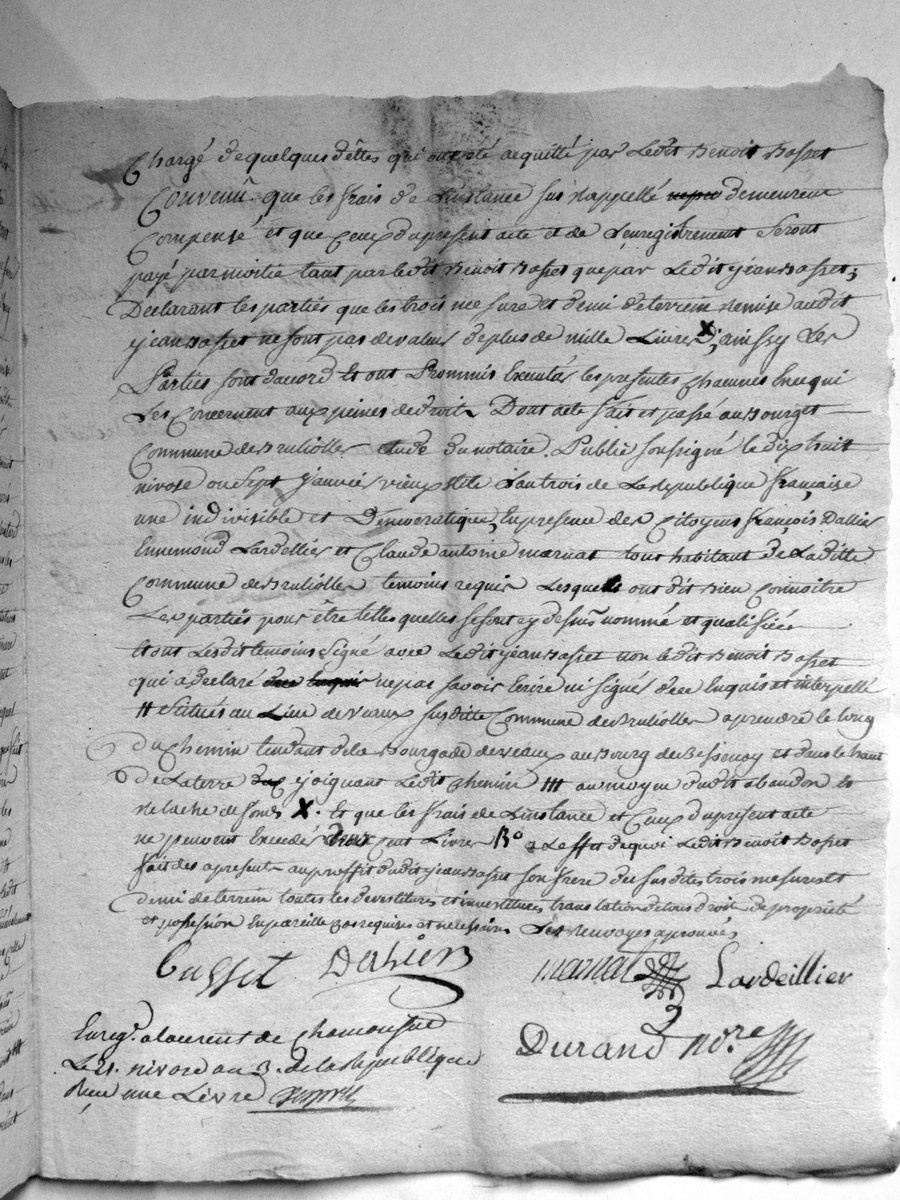 Chargé de quelques dêttes qui ont été acquitté par Ledit Benoit Basset
Convenu que les frais de L'instance sus Rappellé demeurent
Compensé et que Ceux du present acte et de L'enregistrement Seront
payé par moitié tant par ledit Benoit Basset que par Ledit jean Basset;
Declarant les parties que les trois mesure et demi de terrein Remise audit
jean Basset ne sont pas de valeur de plus de mille Livres X, ainssy Les
Parties sont d'acord Et ont Prommis Executer les presentes Chacunes En ce qui
Les Concernent aux peines de droit. Dont acte fait et passé au Bourget
Commune de Bruliolle étude du notaire Public soussigné le dix huit
nivose ou Sept janvier vieux stile L'an trois de La Republique française
une indivisible et Democratique, En presence des Citoyens françois Dallier
Ennemond Lardellier et Claude antoine marnat tous habitant de Laditte
Commune de Bruliolle temoins requis Lesquels ont dit bien Connoitre
Les parties pour être telles quelles se sont cy dessus nommé et qualifiée
Et ont Lesdit temoins Signé avec Ledit jean Basset non ledit Benoit Basset
qui a declaré ne pas savoir Ecrire ni signer de ce Enquis et interpellé
# Situés au Lieu de veaux susditte Commune de Bruliolle a prendre le long
du Chemin tendant de la Bourgade de veaux au Bourg de Bessenay et dans le haut
de La terre joignant Ledit Chemin ### au moyen dudit abandon et
Relache de fonds X. Et que les frais de L'instance et Ceux du present acte
ne peuvent Exceder cent Livres Bo a Leffet de quoi Ledit Benoit Basset
fait des apresent au proffit dudit jean Basset son frere des susdites trois mesures et
demi de terrein toutes les devestitures et investitures, translation de tous droit de propriété
et possession En pareille Cas requises et necessaires Les Renvoyes aprouvés
Basset Dahier marnat Lardeillier
Durand nore
Enregé. a Laurent de Chamousset
Le 21. nivose an 3. de la Republique
Reçu une Livre